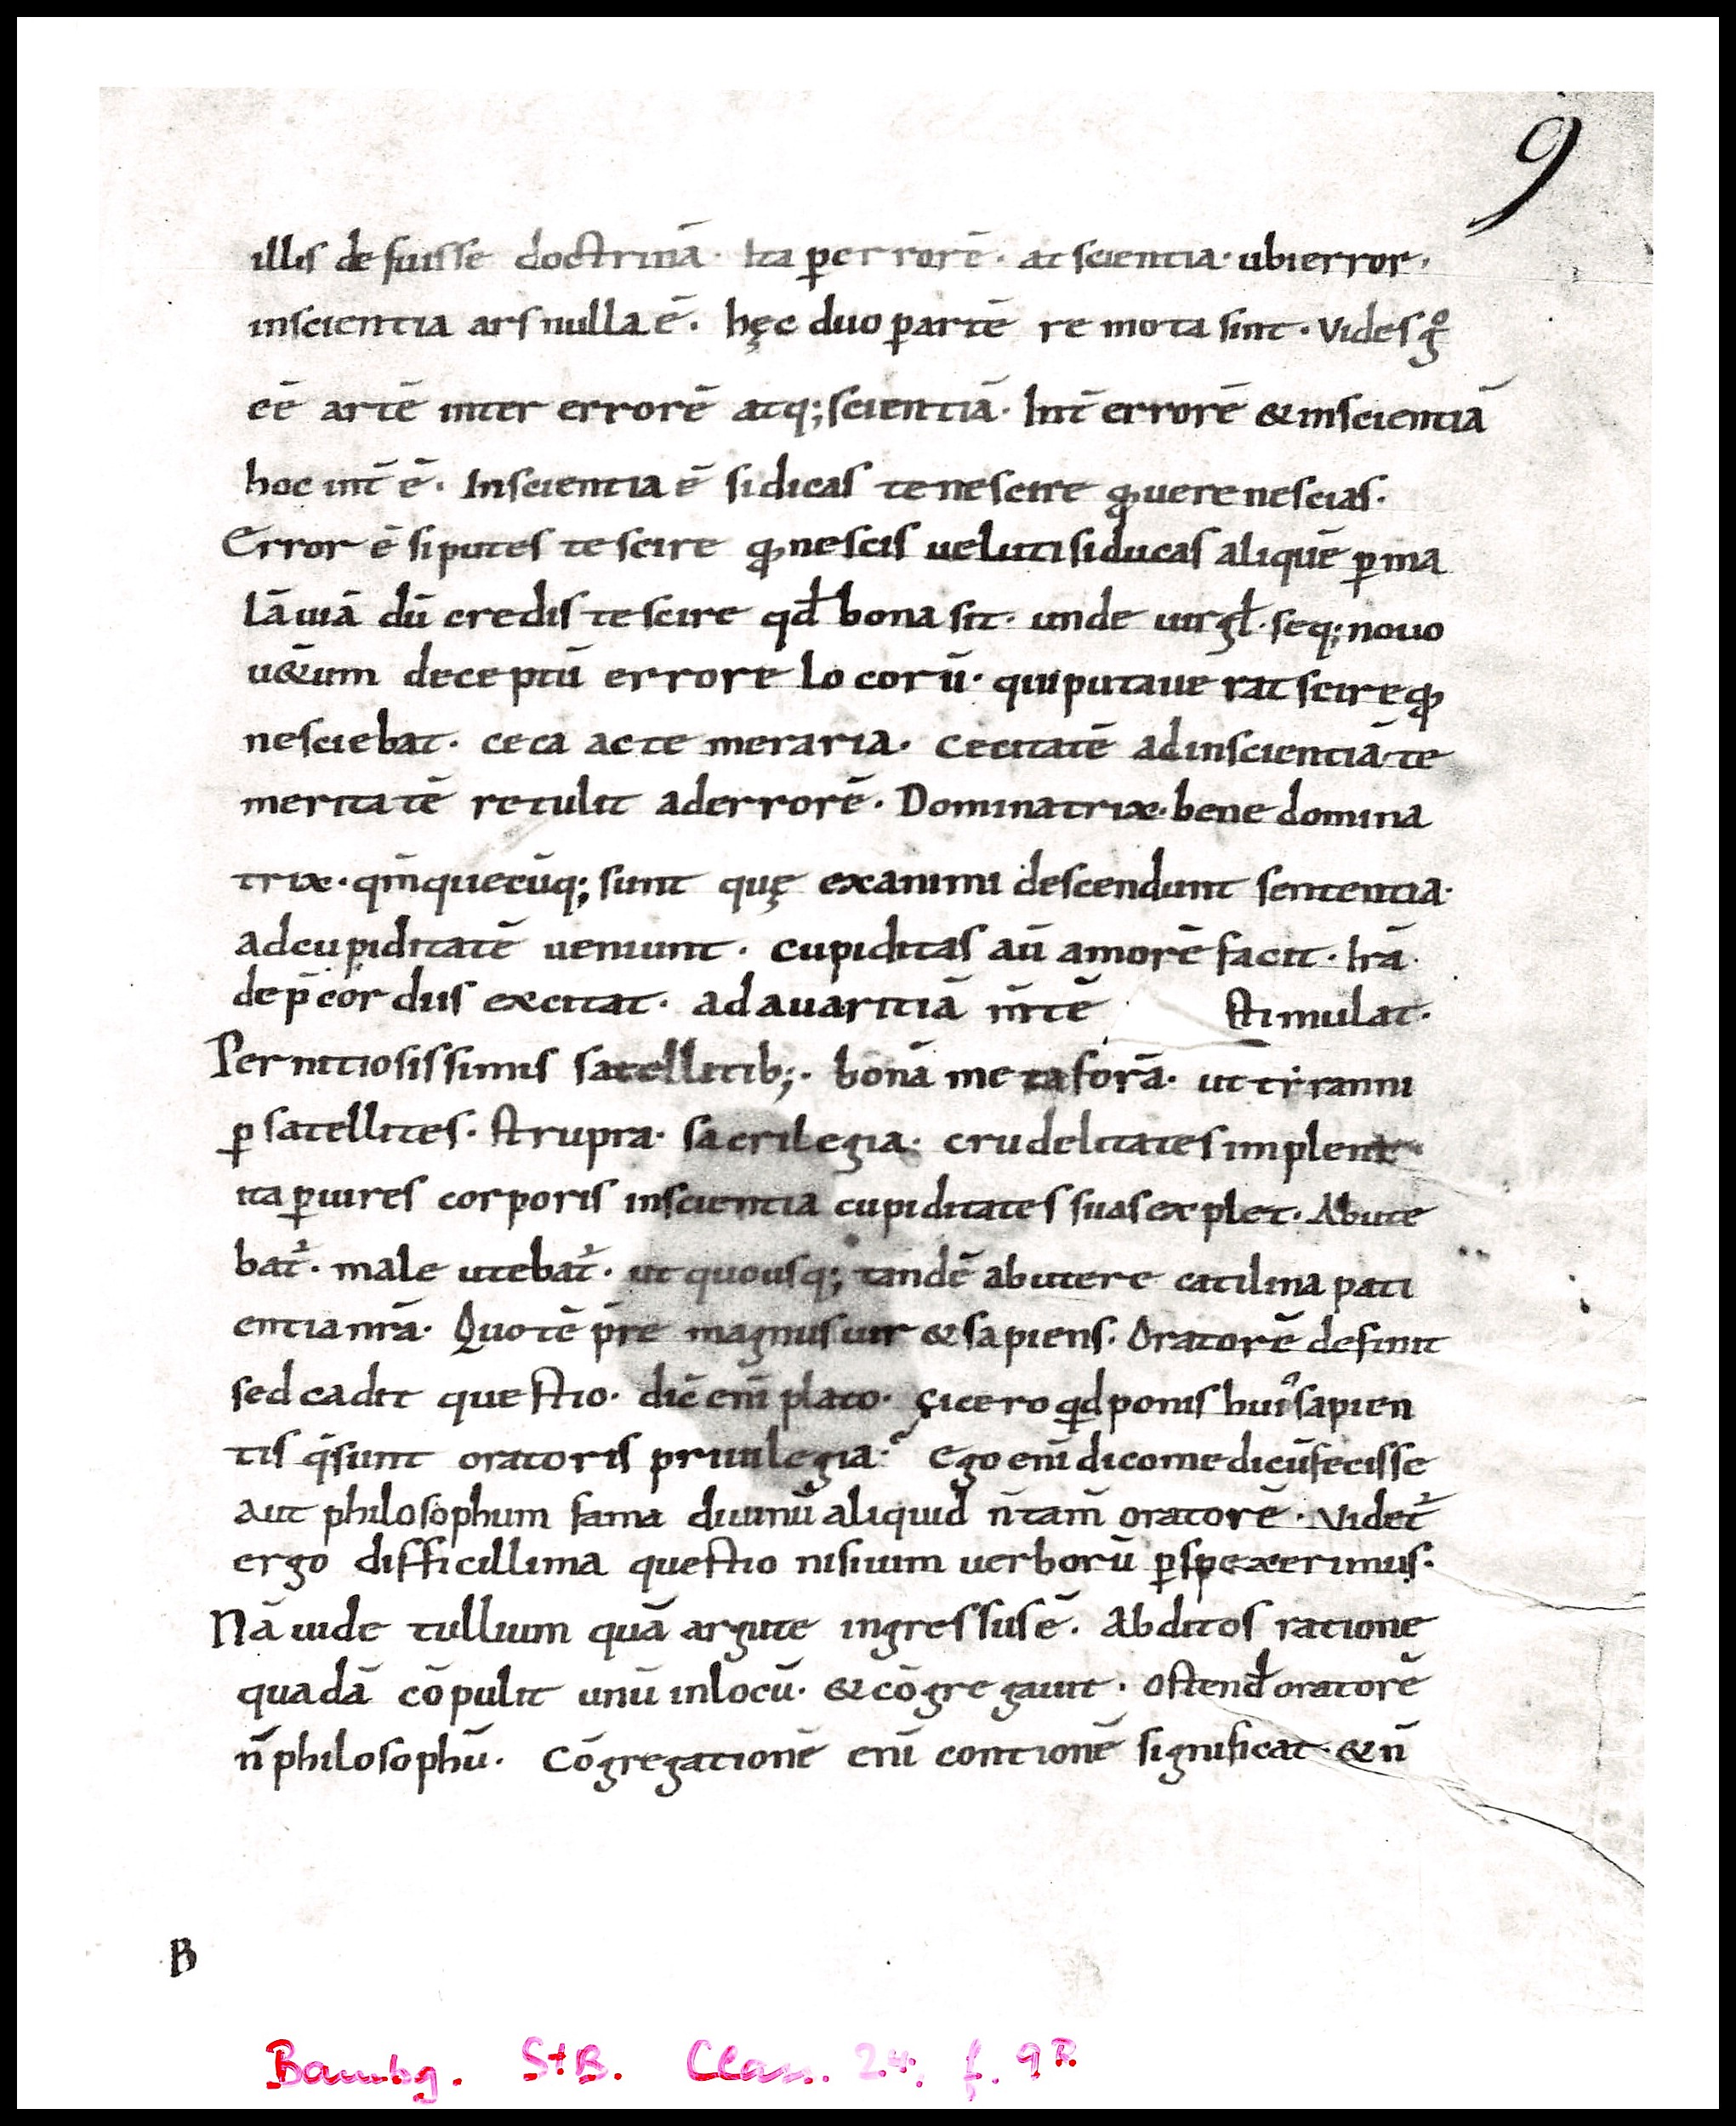 9
illis defuisse doctrinā· Ita ꝑ errorē· at scientia· ubi error·
inscientia ars nulla ē· hęc duo ꝑ artē remota sint· Vides gͦ
eē artē inter errorē atq; scientiā· Int̄ errorē & inscientiā
hoc int̄ ē· Inscientia ē si dicas te nescire ꝙ uere nescias·
Error ē si putes te scire ꝙ nescis uelut si ducas aliquē ꝑ ma
lā uiā dū credis te scire qđ bona sit· unde uirgł· seq; nouo
u&erum deceptū errore locorū· qui putauerat scire ꝙ
nesciebat· ceca ac temeraria· Cecitatē ad inscientiā· te
meritatē retulit ad errorē· Dominatrix· bene domina
trix· qm̄ quecūq; sunt quę ex animi descendunt sententia·
ad cupiditatē ueniunt· cupiditas aū amorē facit· Irā·
de p̄cordiis excitat· ad auaritiā m̄tē stimulat·
Pernitiosissimis satellitib;· bonā metaforā· ut tẏranni
ꝑ satellites· strupra· sacrilegia· crudelitates implent·
ita ꝑ uires corporis inscientia cupiditates suas explet· Abute
bat᷑· male utebat᷑· ut quousq; tandē abutere catilina pati
entia nr̄a· Quo tē p̄re magnus uir & sapiens· Oratorē definit
sed cadit questio· dic̄ eni̅ plato· cicero qd ponis hui᾿ sapien
tis q̄ sunt oratoris priuilegia· Ego eni̅ dico medicū fecisse
aut philosophum fama diuinū aliquid n̄ tam̄ oratorē· Videt᷑
ergo difficillima questio nisi uim uerborū ꝑspexerimus·
Nā uide tullium quā argute ingressus ē· Abditos ratione
quadā cōpulit unū in locū· & cōgregauit· ostend̄ oratorē
n̄ philosophū· Cōgregationē eni̅ contionē significat· & n̄
B
Bambg. StB. Class. 24. f. 9R